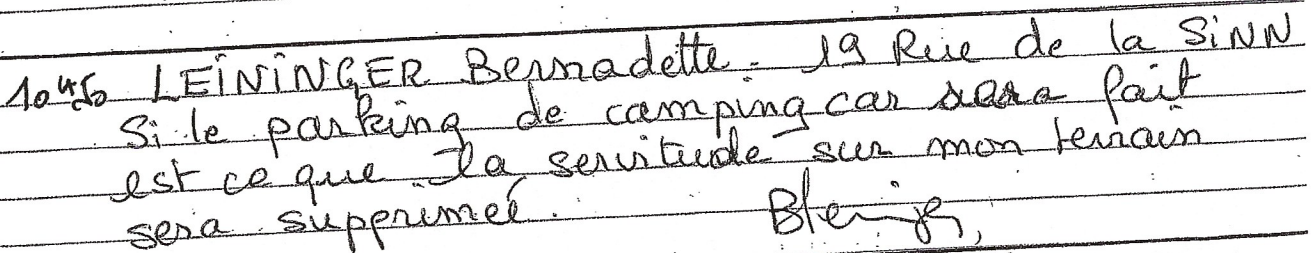 10h50 LEININGER Bernadette - 19 Rue de la SiNN
Si le parking de camping car sera fait
est ce que la servitude sur mon terrain
sera supprimeé.